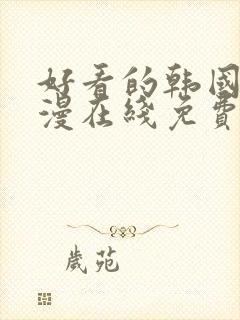 好看的韩国
漫在线免費
歲苑